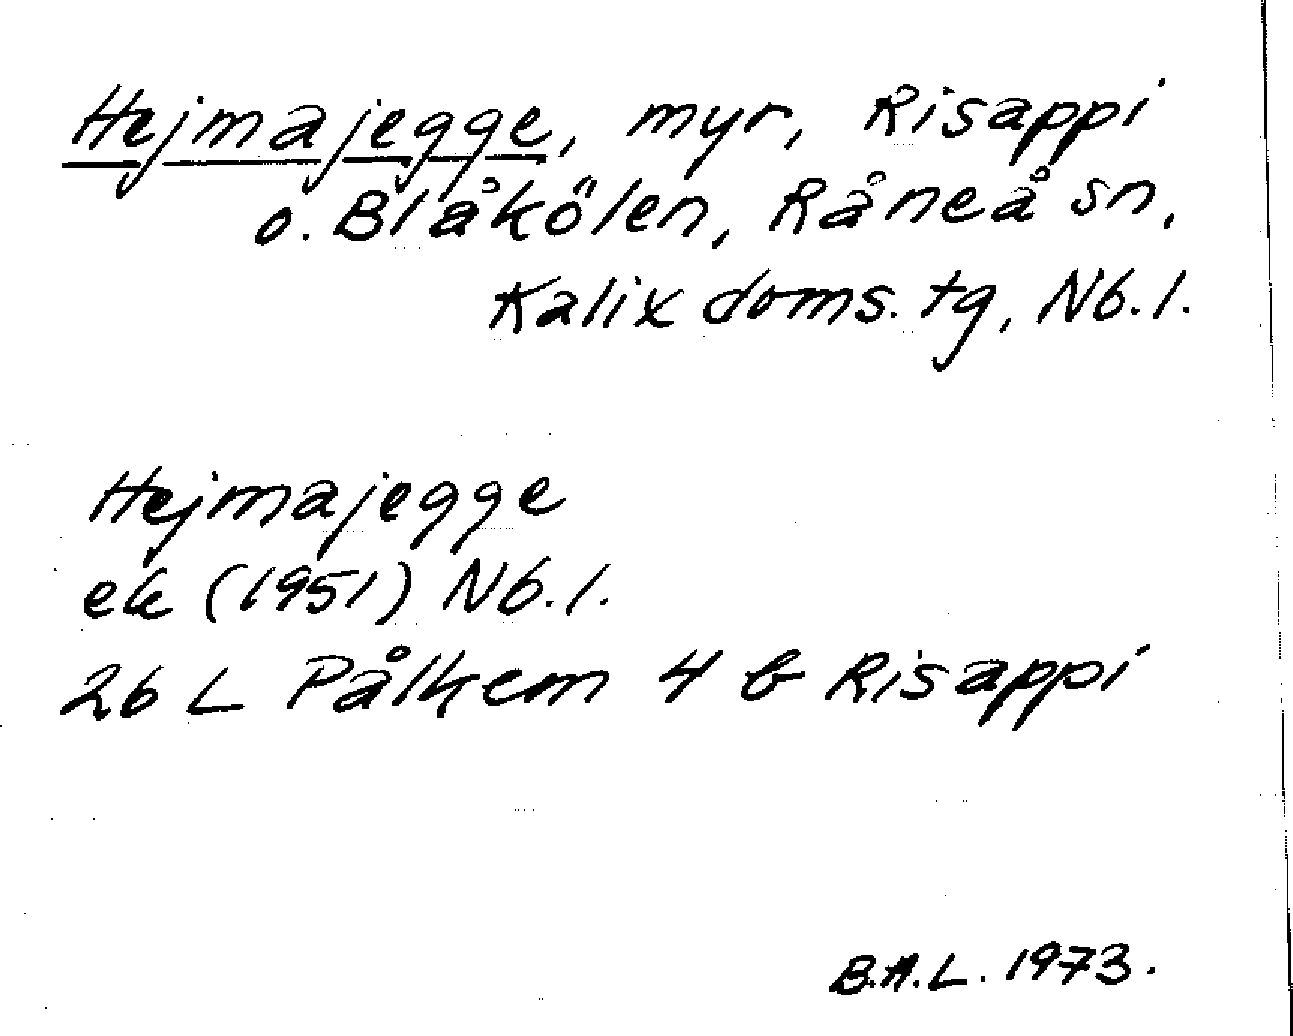 Hejmajegge, myr, Risappi
o. Blåkölen, Råneå sn,
Kalix doms. tg, Nb. l.
Hejmajegge
ek (1951) Nb. l.
26 L Pålkem 4 b Risappi
B.A.L. 1973.